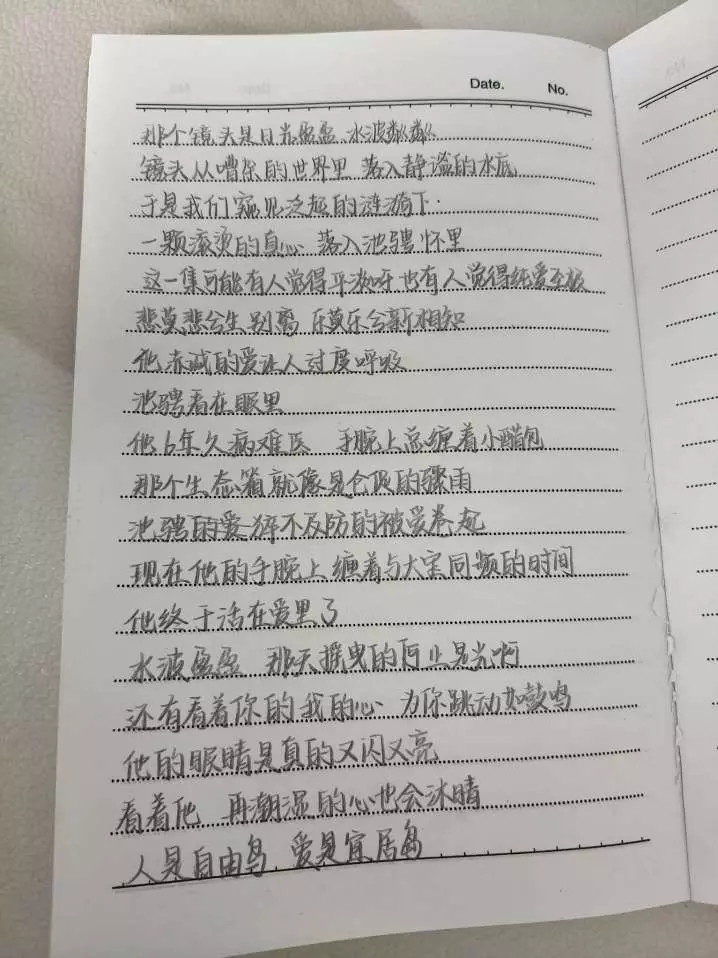 Date. No.
那个镜头是日光盈盈 水波粼粼
镜头从嘈杂的世界里 落入静谧的水底
于是我们窥见泛起的涟漪下.
一颗滚烫的真心 落入池骋怀里
这一集可能有人觉得平淡呀也有人觉得纯爱至极
悲莫悲兮生别离 乐莫乐兮新相知
他赤诚的爱让人过度呼吸
池骋看在眼里
他6年久病难医 手腕上总缠着小醋包
那个生态箱就像是仓促的骤雨
池骋的爱猝不及防的被爱卷起
现在他的手腕上缠着与大宝同频的时间
他终于活在爱里了
水波盈盈 那天摇曳的何止是光啊
还有看着你的我的心 为你跳动如鼓鸣
他的眼睛是真的又闪又亮
看着他 再潮湿的心也会沐晴
人是自由鸟 爱是宜居岛